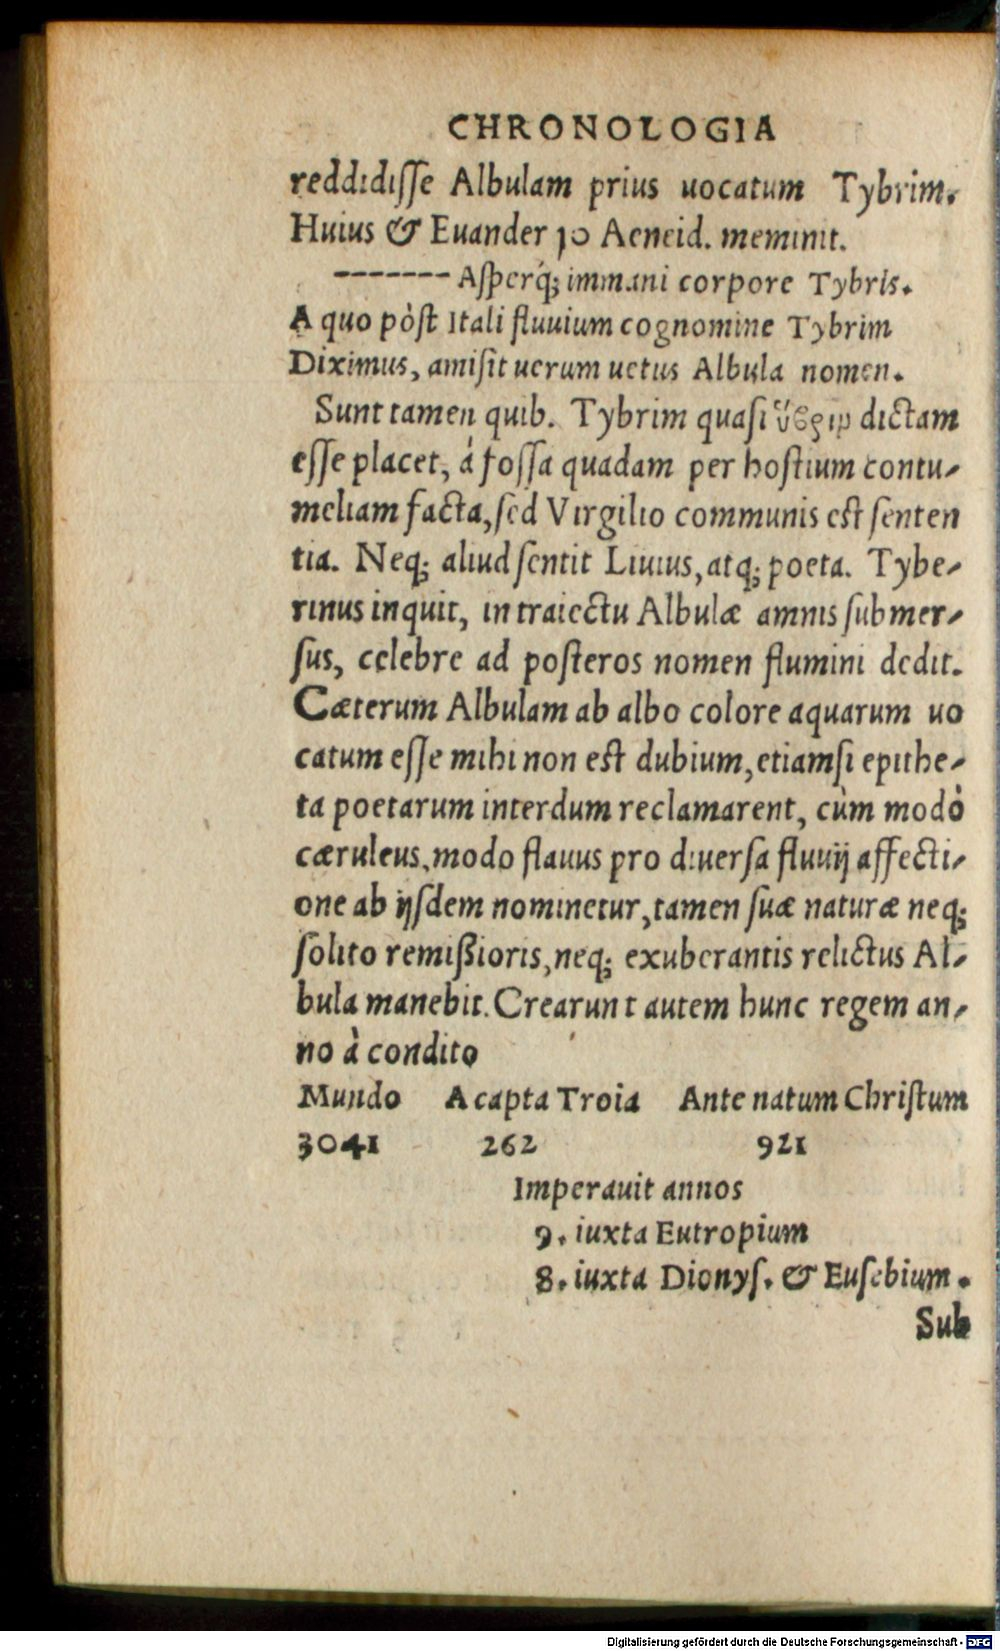 CHRONOLOGIA
reddidisſe Albulam prius uocatum Tybrim.
Huius & Euander 10 Aeneid. meminit.
------- Aſperq́; immani corpore Tybris.
A quo pòſt Itali fluuium cognomine Tybrim
Diximus, amiſit uerum uetus Albula nomen.
Sunt tamen quib. Tybrim quaſi ὕβριν dictam
eſſe placet, à foſſa quadam per hoſtium contu-
meliam facta, ſed Virgilio communis eſt ſenten
tia. Neq; aliud ſentit Liuius, atq; poeta. Tybe-
rinus inquit, in traiectu Albulæ amnis ſubmer-
ſus, celebre ad poſteros nomen flumini dedit.
Cæterum Albulam ab albo colore aquarum uo
catum eſſe mihi non eſt dubium, etiamſi epithe-
ta poetarum interdum reclamarent, cùm modò
cæruleus, modo flauus pro diuerſa fluuij affecti-
one ab ijſdem nominetur, tamen ſuæ naturæ neq;
ſolito remiſſioris, neq; exuberantis relictus Al-
bula manebit. Crearunt autem hunc regem an-
no à condito
Mundo A capta Troia Ante natum Chriſtum
3041 262 921
Imperauit annos
9. iuxta Eutropium
8. iuxta Dionyſ. & Euſebium.
Sub
Digitalisierung gefördert durch die Deutsche Forschungsgemeinschaft - DFG